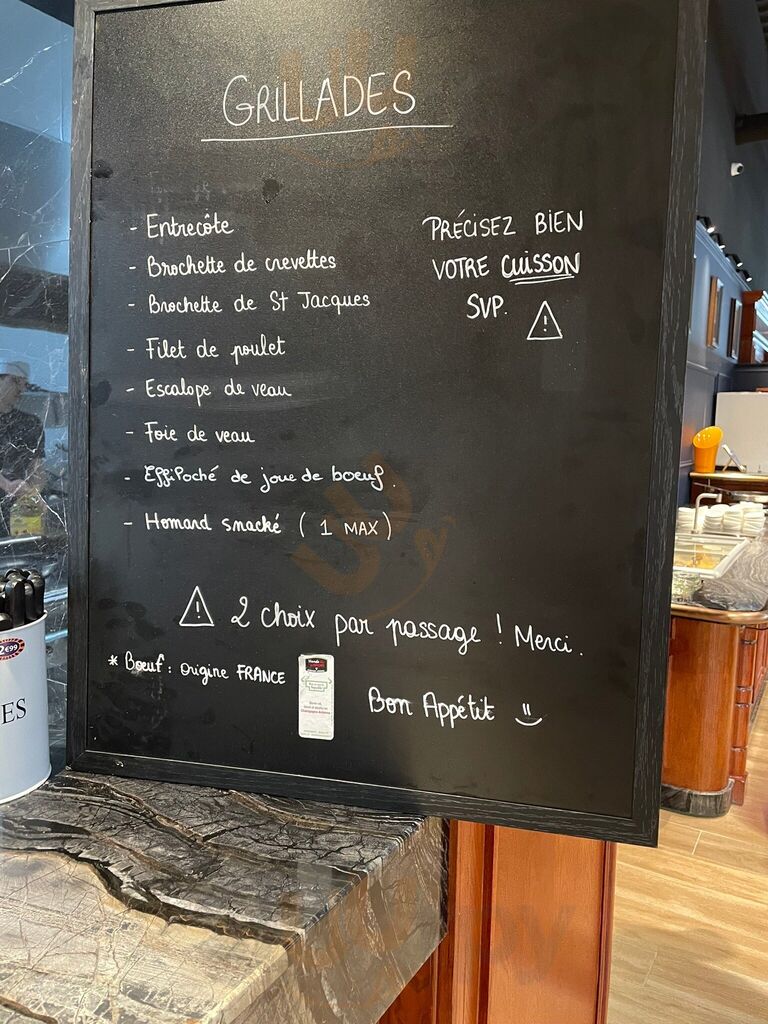 GRILLADES
- Entrecôte
- Brochette de crevettes
- Brochette de St Jacques
- Filet de poulet
- Escalope de veau
- Foie de veau
- Effiloché de joue de boeuf.
- Homard snacké ( 1 MAX )
PRÉCISEZ BIEN
VOTRE CUISSON
SVP.
2 choix par passage ! Merci.
* Boeuf : origine FRANCE
Bon Appétit
2€99
ES